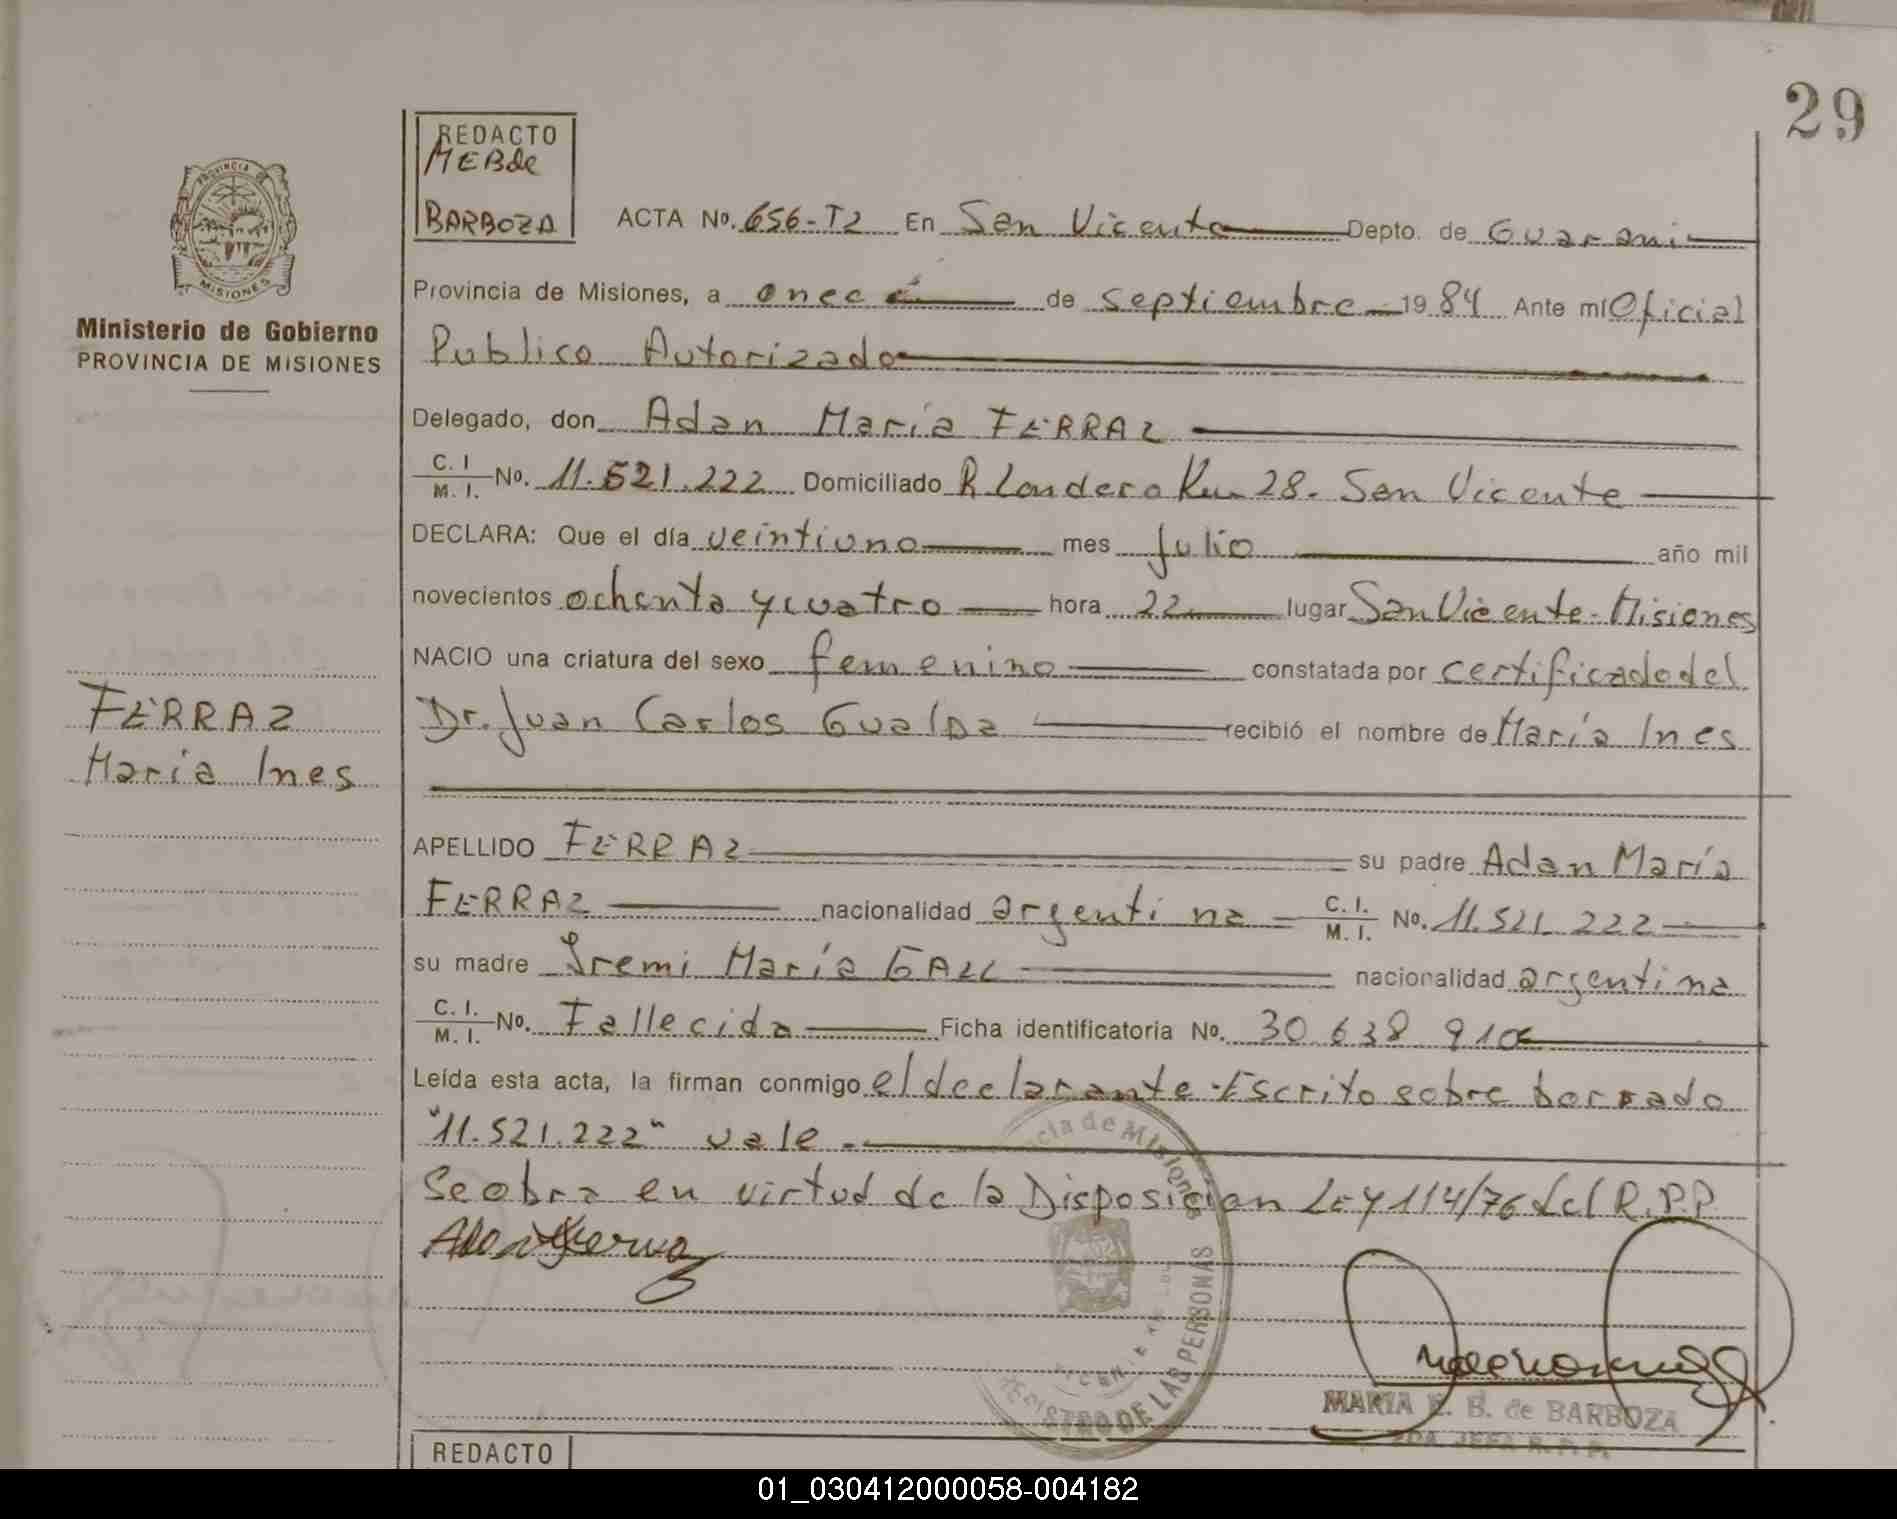 29
REDACTO
MEBde
BARBOZA
PROVINCIA DE
MISIONES
Ministerio de Gobierno
PROVINCIA DE MISIONES
ACTA No. 656-T2 En San Vicente Depto. de Guarani
Provincia de Misiones, a once de septiembre 1984 Ante mí Oficial
Publico Autorizado
Delegado, don Adan María FERRAZ
C. I. / M. I. No. 11.521.222 Domiciliado R. Londero Km 28. San Vicente
DECLARA: Que el día veintiuno mes julio año mil
novecientos ochenta y cuatro hora 22 lugar San Vicente-Misiones
NACIO una criatura del sexo femenino constatada por certificado del
Dr. Juan Carlos Gualpa recibió el nombre de María Ines
FERRAZ
María Ines
APELLIDO FERRAZ su padre Adan María
FERRAZ nacionalidad argentina C. I. / M. I. No. 11.521.222
su madre Iremi María GALL nacionalidad argentina
C. I. / M. I. No. Fallecida Ficha identificatoria No. 30.638.910
Leída esta acta, la firman conmigo el declarante-Escrito sobre borrado
"11.521.222" vale.
Se obra en virtud de la Disposician Ley 114/76 del R.P.P
cia de Misiones
REGISTRO DE LAS PERSONAS
MARIA E. B. de BARBOZA
JEFA R. P. P.
REDACTO
01_030412000058-004182